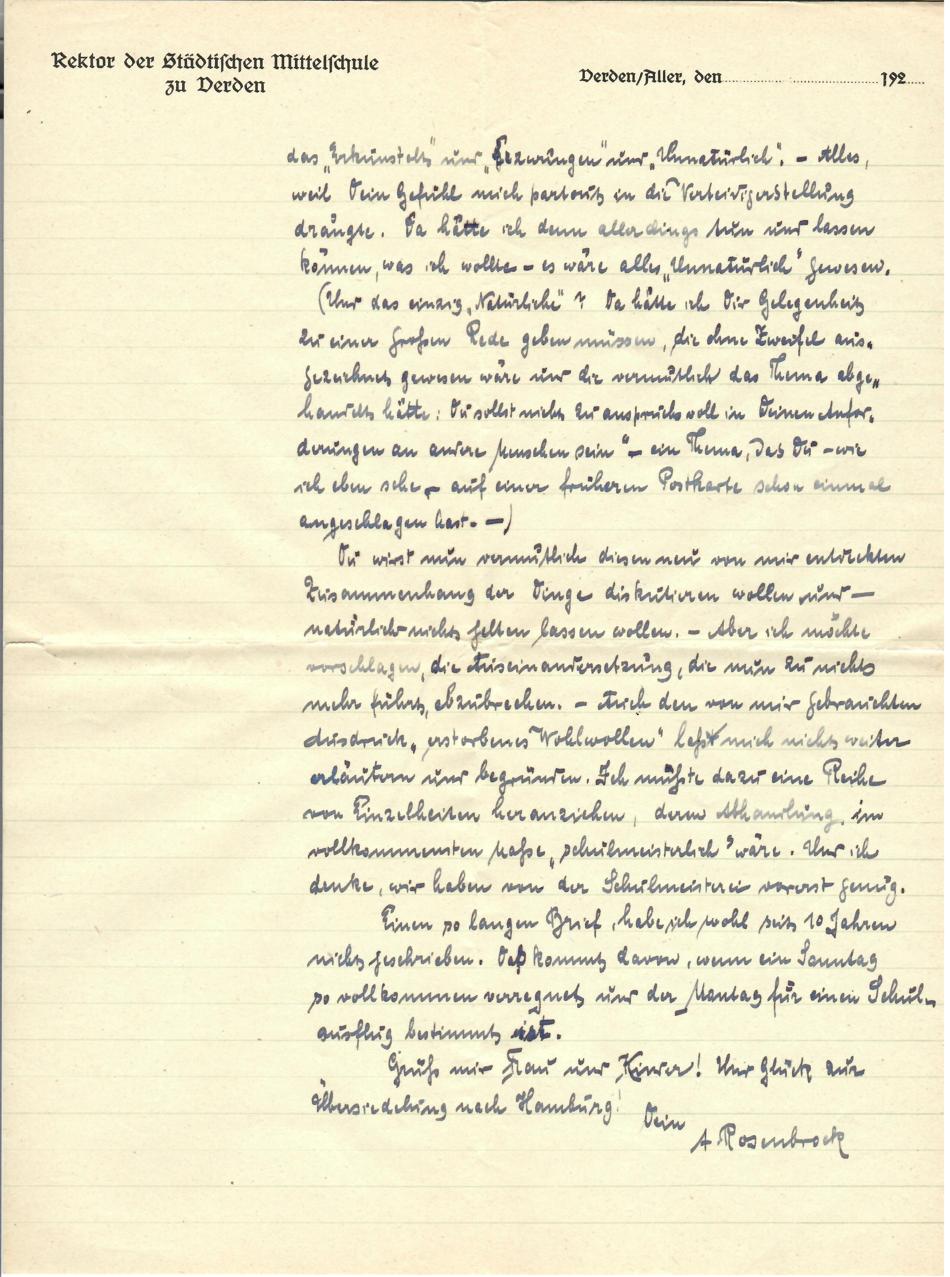 Rektor der Städtischen Mittelschule
zu Verden
Verden/Aller, den 192
das „Erkünstelt“ und „Gezwungen“ und „Unnatürlich“. – Alles,
weil Dein Gefühl mich partout in die Verteidigerstellung
drängte. Da hätte ich denn allerdings tun und lassen
können, was ich wollte – es wäre alles „Unnatürlich“ gewesen.
(Und das einzig „Natürliche“? Da hätte ich Dir Gelegenheit
zu einer großen Rede geben müssen, die ohne Zweifel aus-
gezeichnet gewesen wäre und die vermutlich das Thema abge-
handelt hätte: Du sollst nicht zu anspruchsvoll in Deinen Anfor-
derungen an andere Menschen sein“ – ein Thema, das Du – wie
ich eben sehe – auf einer früheren Postkarte schon einmal
angeschlagen hast. –)
Du wirst nun vermutlich diesen neu von mir entdeckten
Zusammenhang der Dinge diskutieren wollen und –
natürlich nicht gelten lassen wollen. – Aber ich möchte
vorschlagen, die Auseinandersetzung, die nun zu nichts
mehr führt, abzubrechen. – Auch den von mir gebrauchten
Ausdruck „erstorbenes Wohlwollen“ laß mich nicht weiter
erläutern und begründen. Ich müßte dazu eine Reihe
von Einzelheiten heranziehen, deren Abhandlung im
vollkommensten Maße „schulmeisterlich“ wäre. Und ich
denke, wir haben von der Schulmeisterei vorerst genug.
Einen so langen Brief habe ich wohl seit 10 Jahren
nicht geschrieben. Das kommt davon, wenn ein Sonntag
so vollkommen verregnet und der Montag für einen Schul-
ausflug bestimmt ist.
Grüß mir Frau und Kinder! Und Glück zur
Übersiedelung nach Hamburg!
Dein
A Rosenbrock